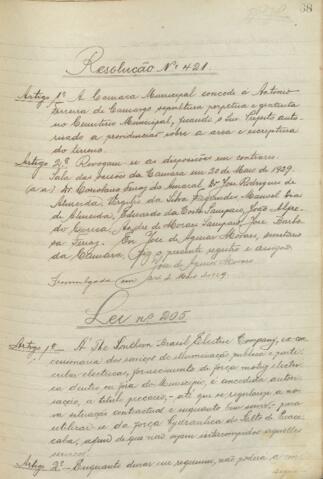 68
Resolução Nº 421.
Artigo 1º A Camara Municipal concede á Antonio
Ferreira de Camargo sepultura perpetua e gratuita
no Cemiterio Municipal, ficando o Sur. Prefeito auto-
risado a providenciar sobre a area e escriptura
do terreno.
Artigo 2º Revogam se as disposições em contrario.
Sala das sessões da Camara em 20 de Maio de 1929.
(a a) Dr. Coriolano Ferraz do Amaral, Dr José Rodrigues de
Almeida, da Silva Fagundes, Manoel Dias
de Almeida, Eduardo da Costa Sampaio, João Alfre-
do Correa, de Moraes Sampaio, José Barbo-
sa Ferraz. Eu José de Aguiar Moraes, secretario
da Camara, fiz o presente registro e assigno.
José de Aguiar Moraes
Promulgada em de Maio de 1929.
Lei nº 205
Artigo 1º A The Southern Brazil Electric Company, ex-con-
cessionaria dos serviços de illuminação publica e parti-
cular electrica, fornecimento de força motriz electri-
ca dentro e fora do Municipio, é concedida autori-
sação, a titulo precario, até que se regularize a no-
va situação contractual e enquanto bem servir, para
utilizar-se da força Hydraulica do Salto de Piraci-
caba, afim de que não sejam interrompidos aquelles
serviços.
Artigo 2º Enquanto durar esse regimen, não poderá a con-